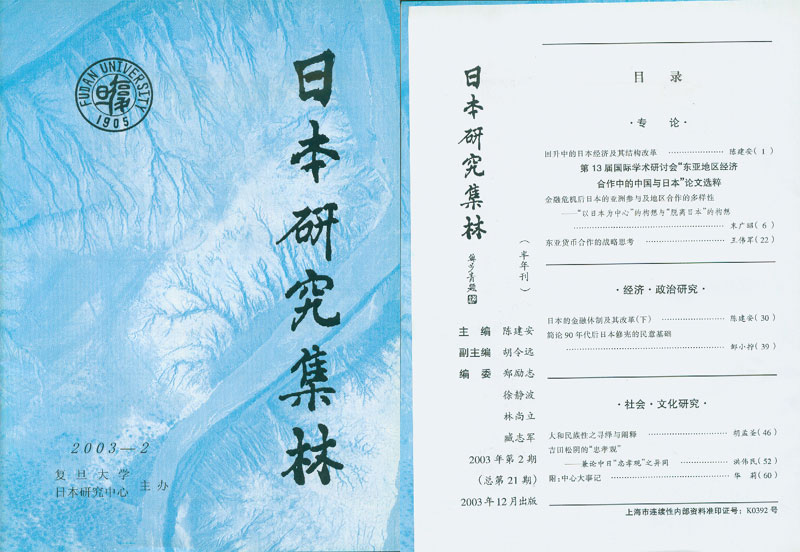 FUDAN UNIVERSITY
1905
日本研究集林
2003—2
复旦大学
日本研究中心 主办
日本研究集林
(半年刊)
主编 陈建安
副主编 胡令远
编委 郑励志
徐静波
林尚立
臧志军
2003年第2期
(总第21期)
2003年12月出版
目录
·专论·
回升中的日本经济及其结构改革 陈建安(1)
第13届国际学术研讨会“东亚地区经济
合作中的中国与日本”论文选粹
金融危机后日本的亚洲参与及地区合作的多样性
——“以日本为中心”的构想与“脱离日本”的构想
朱广昭(6)
东亚货币合作的战略思考 王伟军(22)
·经济·政治研究·
日本的金融体制及其改革(下) 陈建安(30)
简论90年代后日本修宪的民意基础
(39)
·社会·文化研究·
大和民族性之寻绎与阐释 胡孟圣(46)
吉田松阴的“忠孝观”
——兼论中日“忠孝观”之异同 洪伟民(52)
附:中心大事记 华莉(60)
上海市连续性内部资料准印证号:K0392号